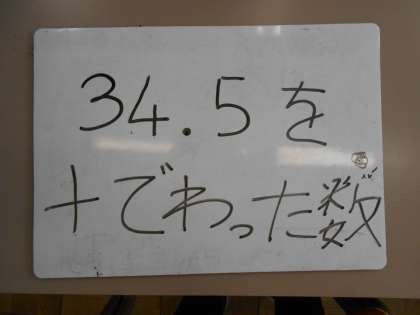 34.5を
十でわった数